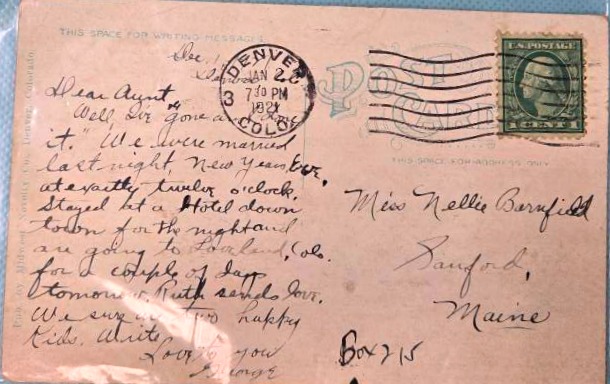 THIS SPACE FOR WRITING MESSAGES
Denver
Dear Aunt,
Well I've gone and
it." We were married
last night, New Years Eve,
at exactly twelve o'clock.
Stayed at a Hotel down
town for the night and
are going to Loveland, Colo.
for a couple of days
tomorrow. Ruth sends love.
We sure are two happy
Kids. Write
Love to you
George
DENVER
JAN 2
7 30 PM
1921
COLO.
3
POST
CARD
U.S. POSTAGE
1 CENT 1
THIS SPACE FOR ADDRESS ONLY
Miss Nellie Barnfield
Sanford,
Maine
Box 215
Novelty Co., Denver, Colorado